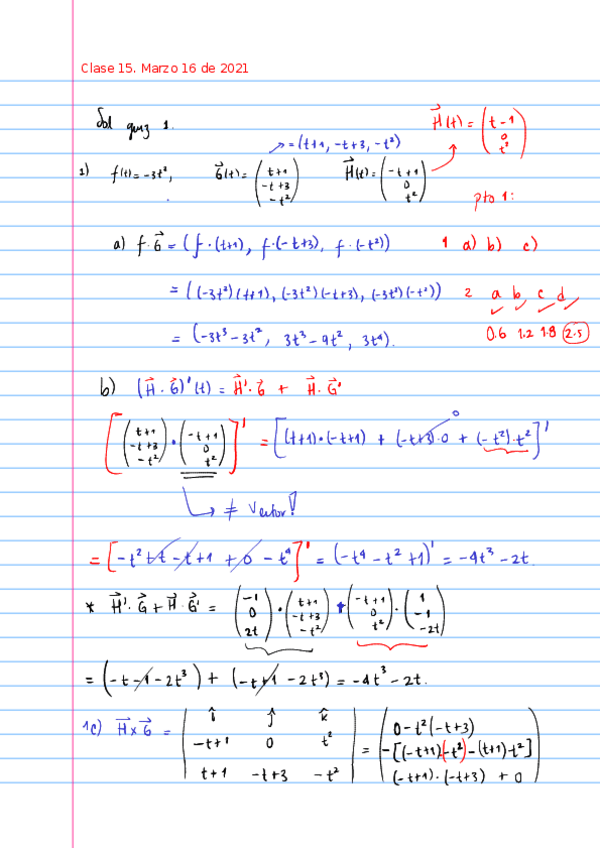 Clase 15. Marzo 16 de 2021
Sol quiz 1.
H⃗(t) = (t-1, 0, t²)
→ = (t+1, -t+3, -t²)
1) f(t) = -3t², G⃗(t) = (t+1, -t+3, -t²) H⃗(t) = (-t+1, 0, t²)
pto 1:
a) f·G⃗ = (f·(t+1), f·(-t+3), f·(-t²)) 1 a) b) c)
= ((-3t²)(t+1), (-3t²)(-t+3), (-3t²)(-t²)) 2 a b c d
= (-3t³-3t², 3t³-9t², 3t⁴). 0.6 1.2 1.8 2.5
b) (H⃗·G⃗)'(t) = H⃗'·G⃗ + H⃗·G⃗'
[(t+1, -t+3, -t²)·(-t+1, 0, t²)]' = [(t+1)·(-t+1) + (-t+3)·0 + (-t²)·t²]' 0
↳ ≠ Vector!
= [-t²+t-t+1+0-t⁴]' = (-t⁴-t²+1)' = -4t³-2t.
* H⃗'·G⃗+H⃗·G⃗' = (-1, 0, 2t)·(t+1, -t+3, -t²) + (-t+1, 0, t²)·(1, -1, -2t)
= (-t-1-2t³) + (-t+1-2t³) = -4t³-2t.
1c) H⃗×G⃗ = | î ĵ k̂ | = (0-t²(-t+3)
-t+1 0 t² -[(-t+1)(-t²)-(t+1)·t²]
t+1 -t+3 -t² (-t+1)·(-t+3) + 0)